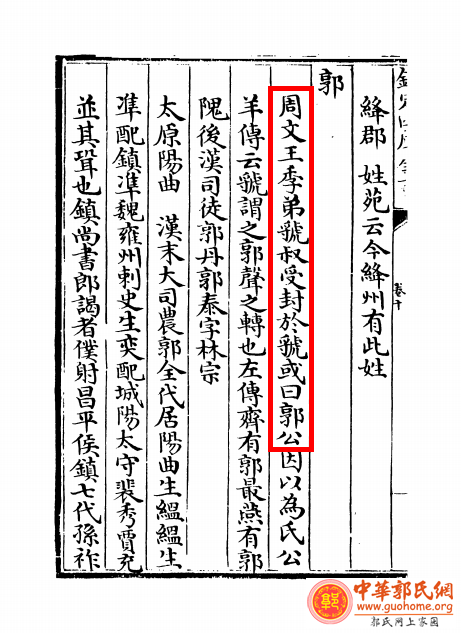 絳郡 姓苑云今絳州有此姓
郭
周文王季弟虢叔受封於虢或曰郭公因以為氏公
羊傳云虢謂之郭聲之轉也左傳齊有郭最燕有郭
隗後漢司徒郭丹郭泰字林宗
太原陽曲 漢末大司農郭全代居陽曲生縕縕生
凖配鎮凖魏雍州刺史生奕配城陽太守裴秀賈充
並其壻也鎮尚書郎謁者僕射昌平侯鎮七代孫祚
卷十
中華郭氏網
www.guohome.org
郭氏网上家园